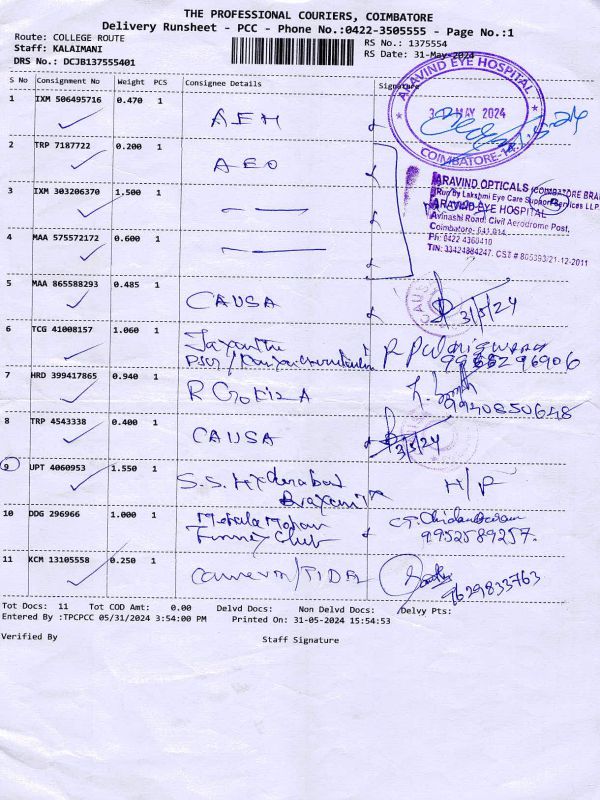 THE PROFESSIONAL COURIERS, COIMBATORE
Delivery Runsheet - PCC - Phone No.:0422-3505555 - Page No.:1
Route: COLLEGE ROUTE
Staff: KALAIMANI
DRS No.: DCJB137555401
RS No.: 1375554
RS Date: 31-May-2024
S No Consignment No Weight PCS Consignee Details Signature
ARAVIND EYE HOSPITAL
MAY 2024
COIMBATORE-14
1 IXM 506495716 0.470 1 AEH
2 TRP 7187722 0.200 1 AEO
ARAVIND OPTICALS (COIMBATORE BRA
Run by Lakshmi Eye Care Support Services LLP
ARAVIND EYE HOSPITAL
Avinashi Road, Civil Aerodrome Post,
Coimbatore- 641 014.
Ph: 0422 4360410
3 IXM 303206370 1.500 1
4 MAA 575572172 0.600 1
5 MAA 865588293 0.485 1 CAUSA 31/5/24
6 TCG 41008157 1.060 1
7 HRD 399417865 0.940 1 R Gokila 9940850648
8 TRP 4543338 0.400 1 CAUSA 31/5/24
9 UPT 4060953 1.550 1 S.S. Hyderabad H/F
10 DDG 296966 1.000 1 9952589257.
11 KCM 13105558 0.250 1 9629833763
Tot Docs: 11 Tot COD Amt: 0.00 Delvd Docs: Non Delvd Docs: Delvy Pts:
Entered By :TPCPCC 05/31/2024 3:54:00 PM Printed On: 31-05-2024 15:54:53
Verified By Staff Signature